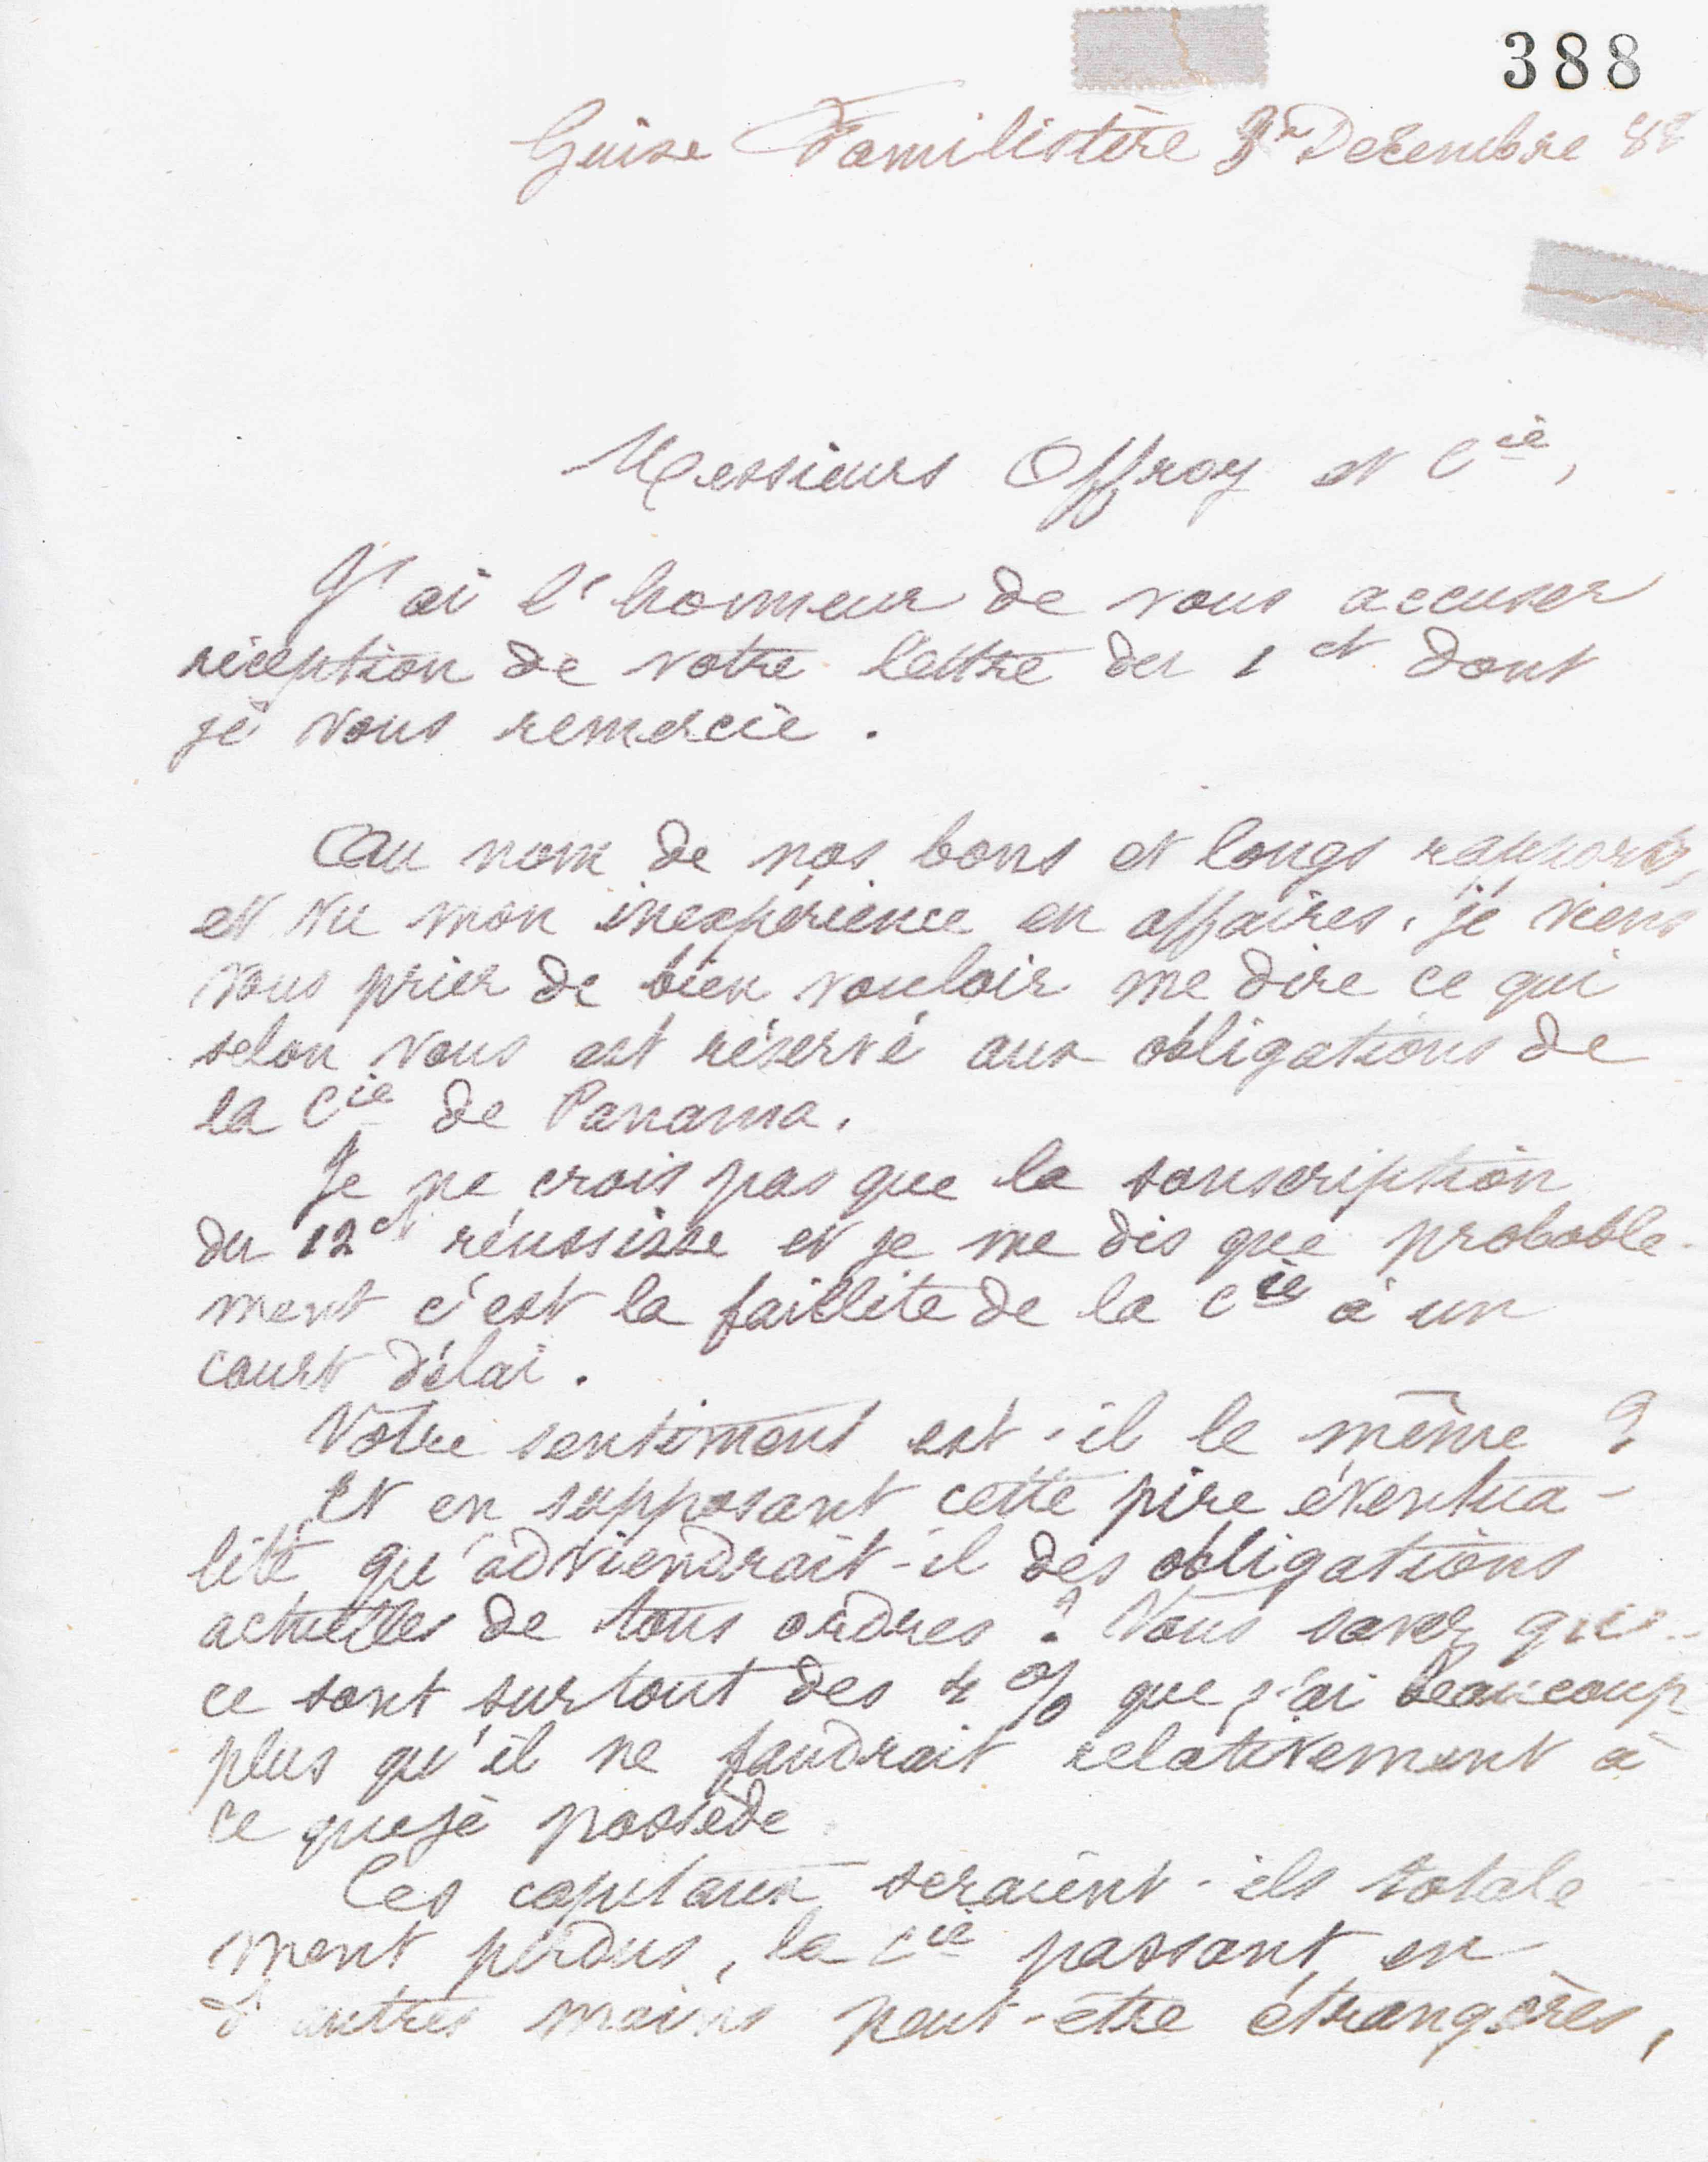 388
Guise Familistère Décembre 88
Messieurs Offroy et Cie,
J'ai l'honneur de vous accuser
réception de votre lettre du 1 ct dont
je vous remercie.
Au nom de nos bons et longs rapports,
et vu mon inexpérience en affaires, je viens
vous prier de bien vouloir me dire ce qui
selon vous est réservé aux obligations de
la Cie de Panama.
Je ne crois pas que la souscription
du 12 ct réussisse et je me dis que probable-
ment c'est la faillite de la Cie à un
court délai.
Votre sentiment est-il le même ?
Et en supposant cette pire éventua-
lité qu'adviendrait-il des obligations
actuelles de tous ordres ? Vous savez que
ce sont surtout des 4 % que j'ai beaucoup
plus qu'il ne faudrait relativement à
ce que je possède.
Ces capitaux seraient-ils totale
ment perdus, la Cie passant en
d'autres mains peut-être étrangères,